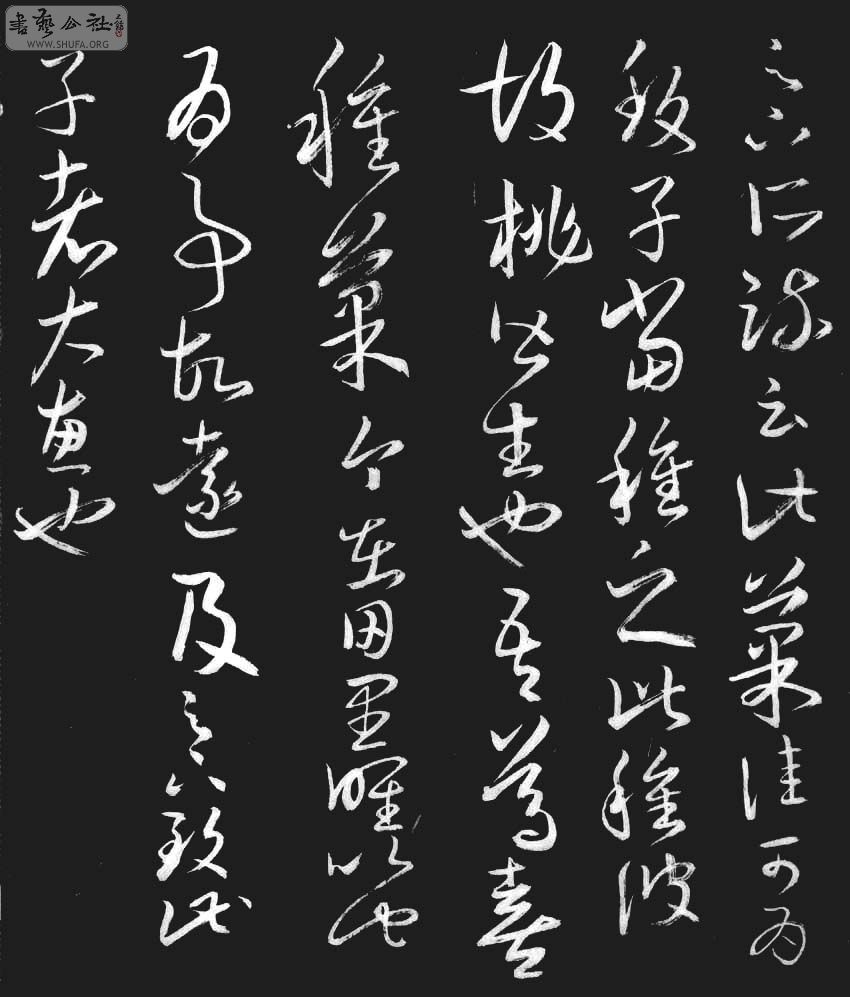 書藝公社
WWW.SHUFA.ORG
足下所疏云此菓佳可為
致子當種之此種彼
胡桃皆生也吾篤喜
種菓今在田里唯以此
為事故遠及足下致此
子者大惠也